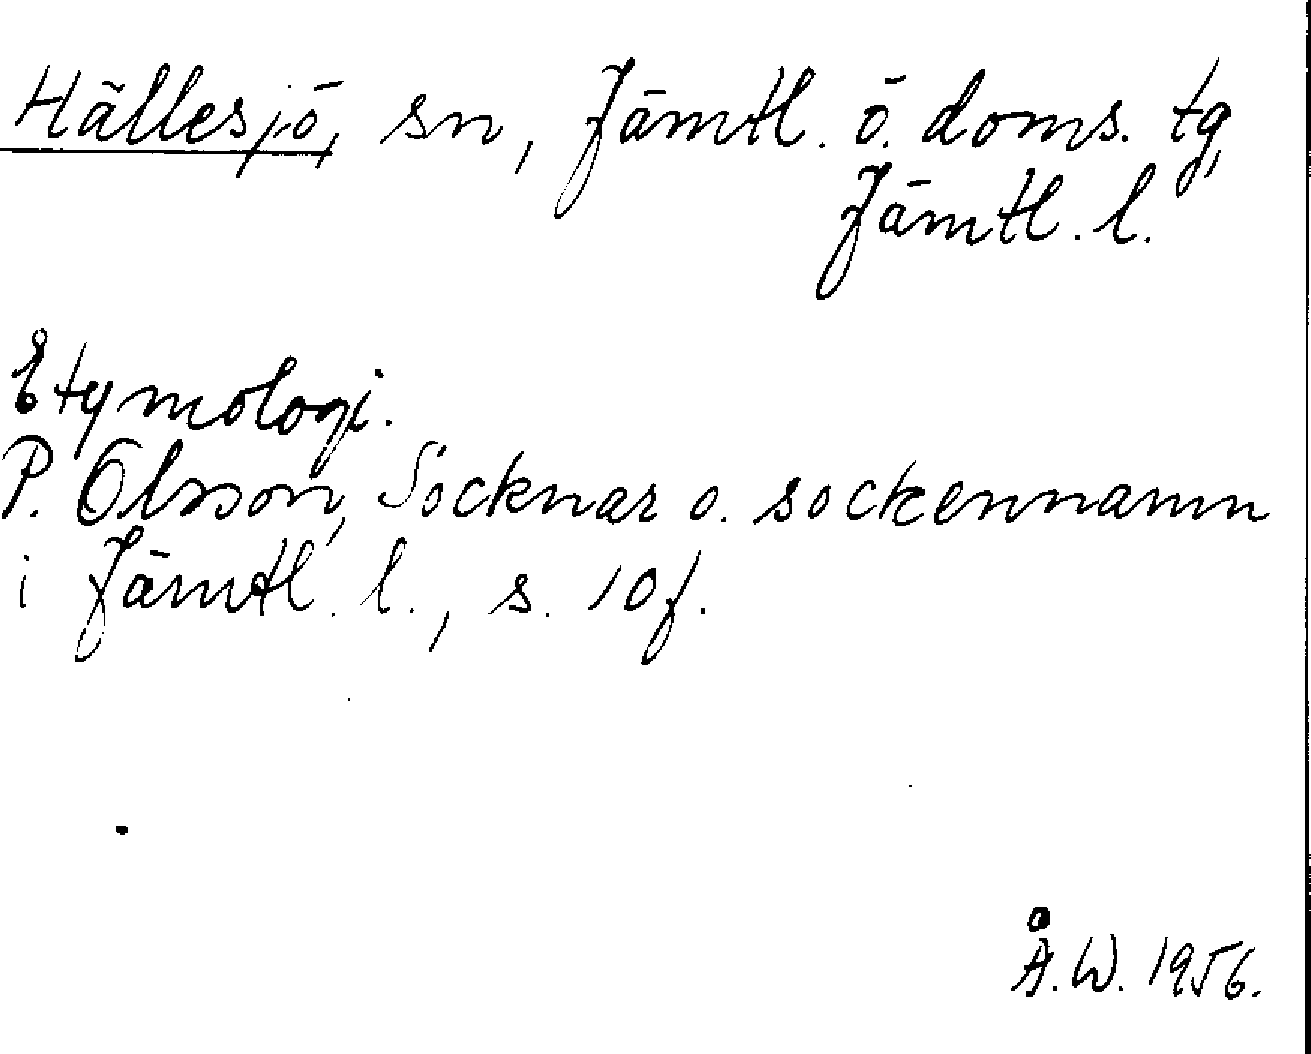 Hällesjö, sn, Jämtl. ö. doms. tg,
Jämtl. l.
Etymologi.
P. Olsson, Socknar o. sockennamn
i Jämtl. l., s. 10 f.
Å. W. 1956.